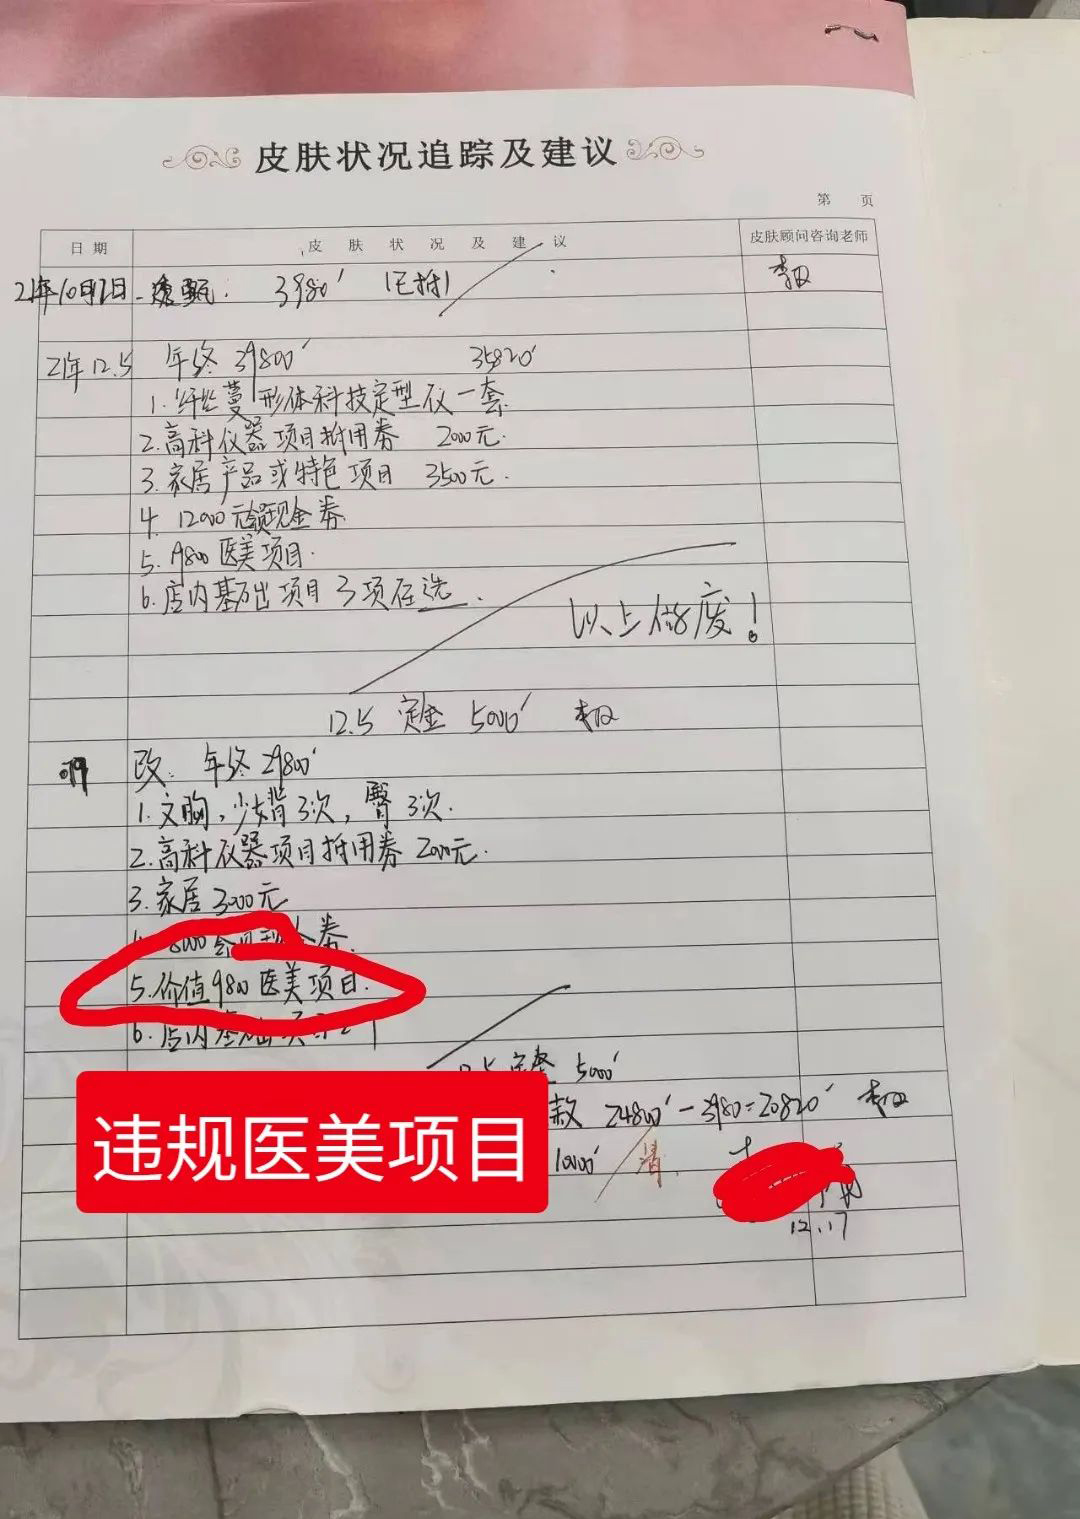 皮肤状况追踪及建议
第 页
日期 皮肤状况及建议 皮肤顾问咨询老师
21年10月 3980'
21年12.5 年终39800' 35820'
1. 纤丝蔓形体科技定型仪一套
2. 高科仪器项目抵用券 2000元.
3. 家居产品或特色项目 3500元.
4. 12000元 现金券
5. 9800医美项目.
6. 店内基础项目3项任选.
以上作废!
12.5 定金 5000'
改: 年终29800'
1. 文胸,少女背3次,臀3次.
2. 高科仪器项目抵用券 2000元.
3. 家居 3000元
券.
5. 价值9800医美项目.
6. 店内
定金 5000'
违规医美项目
款 24800'-3980=20820'
10000' 清.
12.17